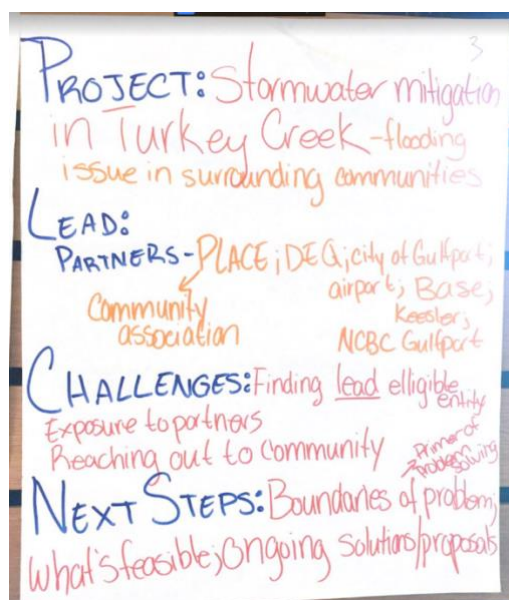 3
PROJECT: Stormwater mitigation
in Turkey Creek - flooding
issue in surrounding communities
LEAD:
PARTNERS - PLACE; DEQ; city of Gulfport;
airport; Base;
Community
Keesler;
association
NCBC Gulfport
CHALLENGES: Finding lead elligible
entity
Exposure to partners
Reaching out to Community
Primer of
Problem solving
NEXT STEPS: Boundaries of problem;
what's feasible; Ongoing solutions/proposals